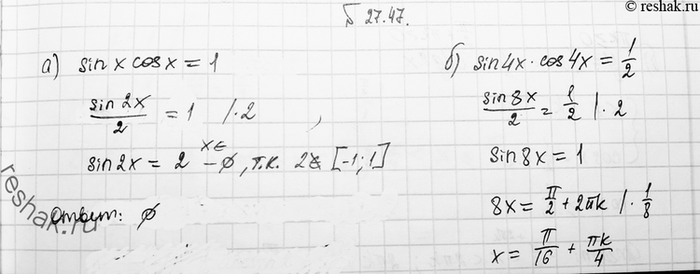 © reshak.ru
Б 27.47.
а) sin x cos x = 1
sin 2x / 2 = 1 | · 2 ,
sin 2x = 2 x∈ – ∅, т.к. 2 ∉ [-1; 1]
Ответ: ∅
б) sin 4x · cos 4x = 1/2
sin 8x / 2 = 1/2 | · 2
sin 8x = 1
8x = π/2 + 2πk | · 1/8
x = π/16 + πk/4
reshak.ru